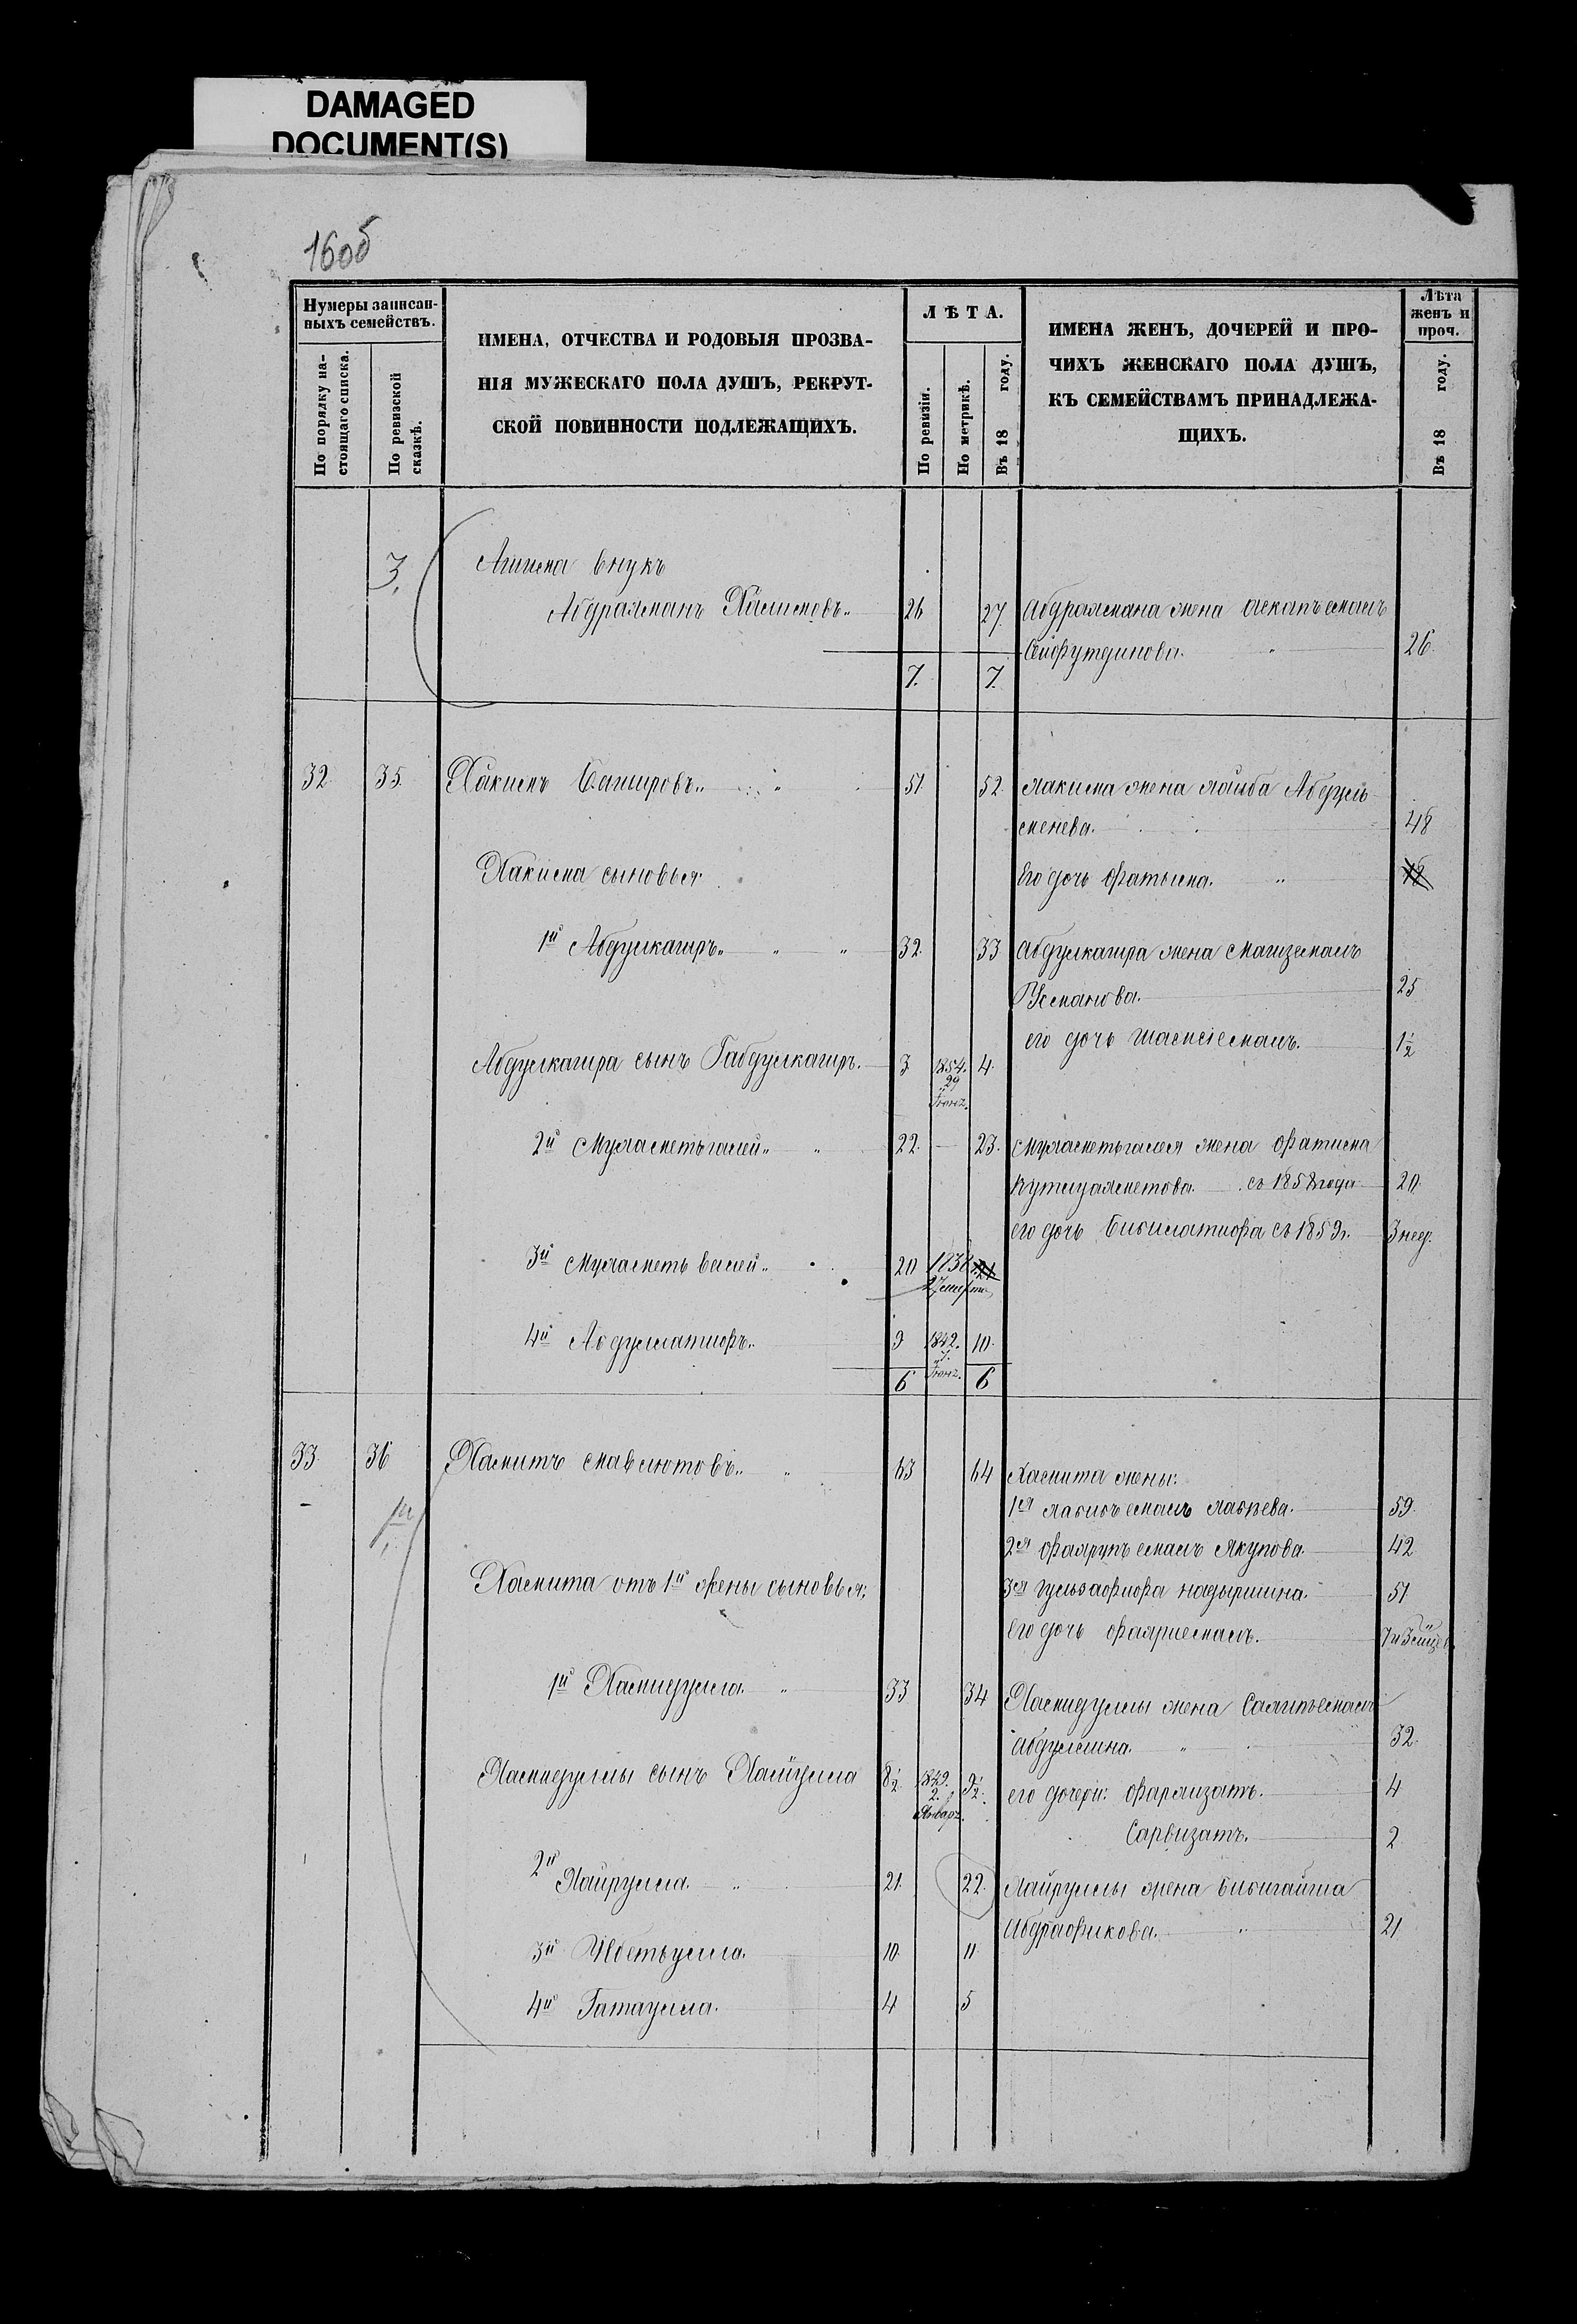 DAMAGED
DOCUMENT(S)
160об
Нумеры записан-
ныхъ семействъ.
По порядку на-
стоящаго списка.
По ревизской
сказкѣ.
ИМЕНА, ОТЧЕСТВА И РОДОВЫЯ ПРОЗВА-
НІЯ МУЖЕСКАГО ПОЛА ДУШЪ, РЕКРУТ-
СКОЙ ПОВИННОСТИ ПОДЛЕЖАЩИХЪ.
ЛѢТА.
По ревизіи.
По метрикѣ.
Въ 18 году.
ИМЕНА ЖЕНЪ, ДОЧЕРЕЙ И ПРО-
ЧИХЪ ЖЕНСКАГО ПОЛА ДУШЪ,
КЪ СЕМЕЙСТВАМЪ ПРИНАДЛЕЖА-
ЩИХЪ.
Лѣта
женъ и
проч.
Въ 18 году.
3. внукъ
Абдрахманъ Хасимовъ 26 27 Абдрахмана жена
Сейфутдинова. 26
7. 7.
32 35. Хакимъ Баширъвъ 51 52 Хакима жена Абдуль
менева. 48
Хакима сыновья Его дочь Фатыма.
1й Абдулкагиръ 32. 33 Абдулкагира жена
Усманова. 25
его дочь 1½
Абдулкагира сынъ Габдулкагиръ. 3 1854. 4.
29
2й Мухаметьгалей 22. 23. Мухаметьгалея жена Фатима
Кутлуахметова. съ 1858 года 20
его дочь Бибилатифа съ 1859г. 3 нед.
3й Мухаметь валей 20 1838
4й Абдуллатифъ 9 1842. 10.
6 6
33. 36 Хамитъ Мавлютовъ 63 64 Хамита жены:
1я 59.
1й 2я Якупова. 42
Хамита отъ 1й жены сыновья: 3я Гульзафифа Надыршина. 51
Его дочь
1й Хамидулла 33 34 Хамидуллы жена
Абдуллина. 32.
Хамидуллы сынъ 8½ 1849. 9½ его дочери: Фархизатъ. 4
2.
Январ.
Сарвизатъ. 2
2й Хайрулла. 21. 22. Хайруллы жена
Абдрафикова. 21
3й 10. 11.
4й Гатаулла. 4 5